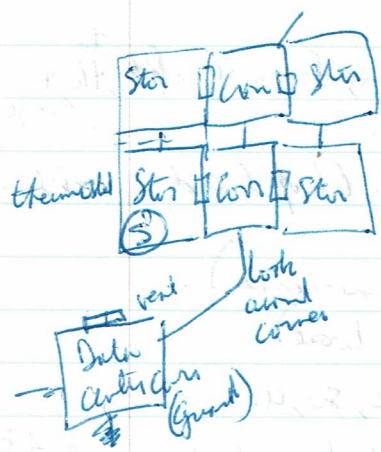 Stor Corr Stor
thermostat Stor Corr Stor
S
look
around
corner
vent
Data
center
(guard)